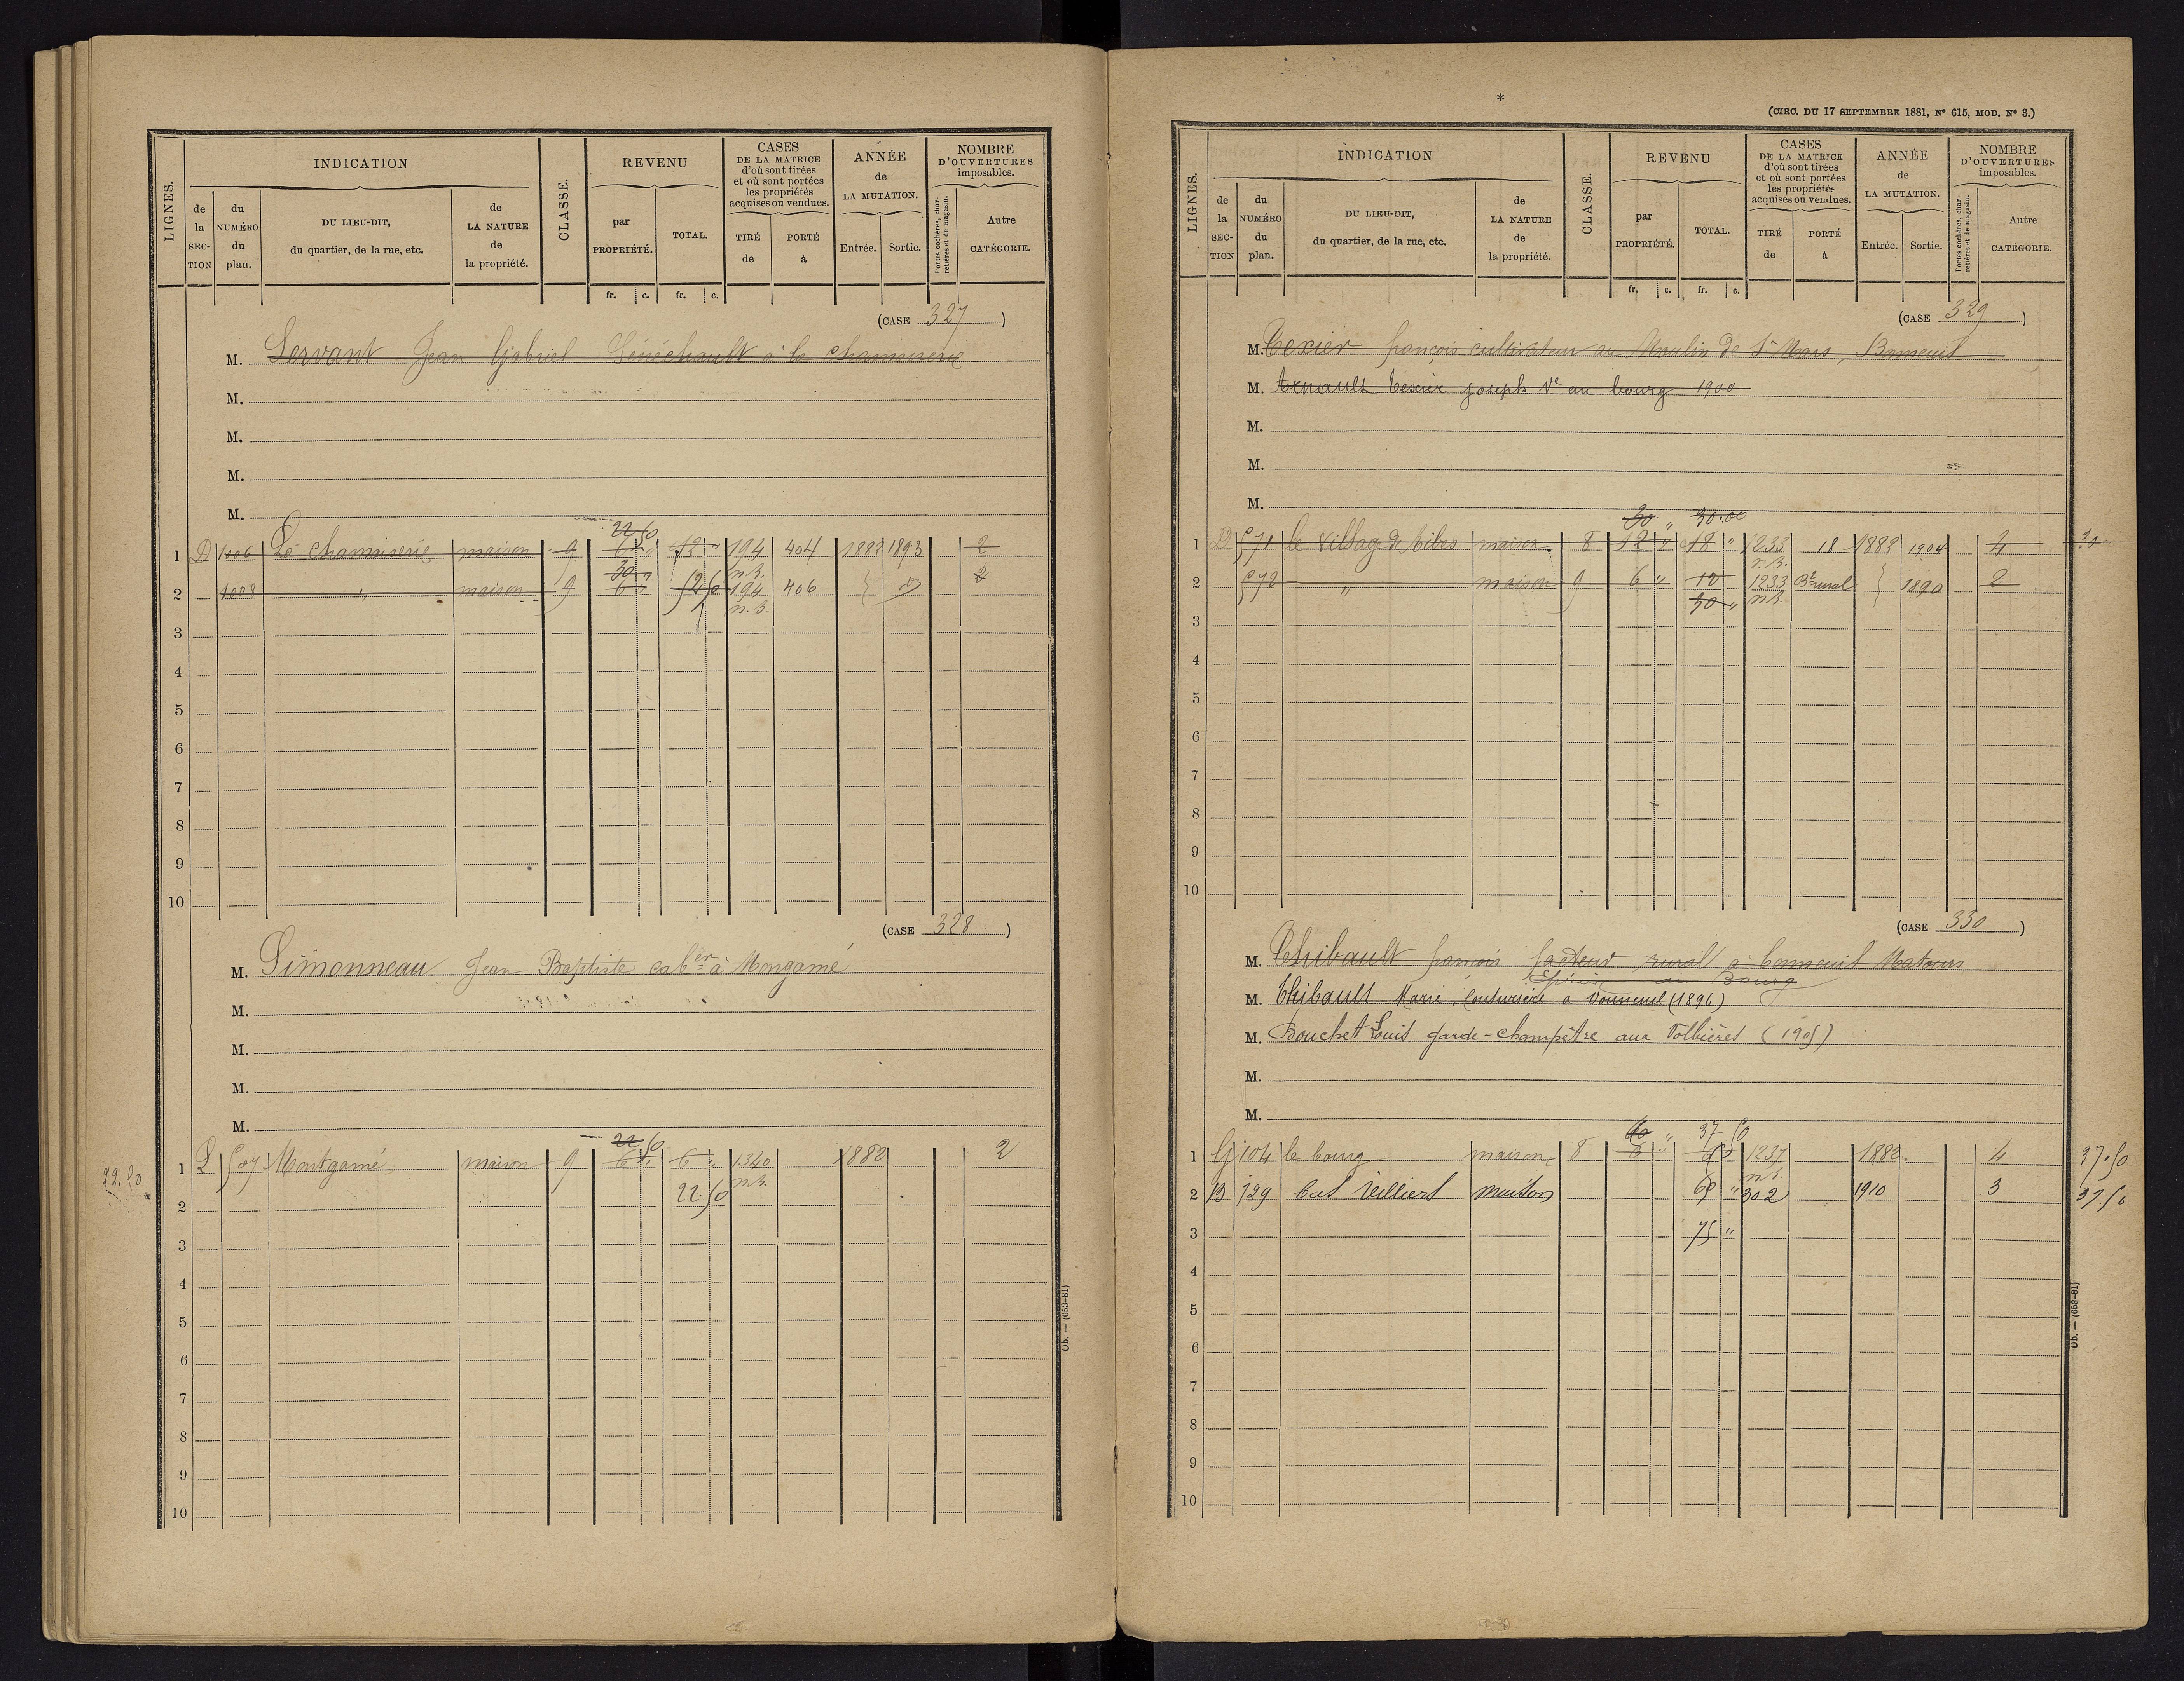 LIGNES.
INDICATION
de la SECTION
du NUMÉRO du plan.
DU LIEU-DIT, du quartier, de la rue, etc.
de LA NATURE de la propriété.
CLASSE.
REVENU
par PROPRIÉTÉ.
TOTAL.
CASES DE LA MATRICE d'où sont tirées et où sont portées les propriétés acquises ou vendues.
TIRÉ de
PORTÉ à
ANNÉE de LA MUTATION.
Entrée.
Sortie.
NOMBRE D'OUVERTURES imposables.
Portes cochères, charretières et de magasin.
Autre CATÉGORIE.
fr. c. fr. c.
(CASE 327)
M. Servant Jean Gabriel Sénéchault à la chamoiserie
M.
M.
M.
M.
22 50
1 D 1006 La chamoiserie maison 9 6 " 12 " 194 404 1882 1893 2
30 " n.B.
2 1008 " maison 9 6 " 52 50 194 406 2
n.B.
3
4
5
6
7
8
9
10
(CASE 328)
M. Simonneau Jean Baptiste cab er à Mongamé
M.
M.
M.
M.
22 50
1 L 507 Montgamé maison 9 6 " 6 " 1340 1882 2
22.50
22 50 n.B.
2
3
4
5
6
7
8
9
10
Ob. — (653-81)
(CIRC. DU 17 SEPTEMBRE 1881, N° 615, MOD. N° 3.)
LIGNES.
INDICATION
de la SECTION
du NUMÉRO du plan.
DU LIEU-DIT, du quartier, de la rue, etc.
de LA NATURE de la propriété.
CLASSE.
REVENU
par PROPRIÉTÉ.
TOTAL.
CASES DE LA MATRICE d'où sont tirées et où sont portées les propriétés acquises ou vendues.
TIRÉ de
PORTÉ à
ANNÉE de LA MUTATION.
Entrée.
Sortie.
NOMBRE D'OUVERTURES imposables.
Portes cochères, charretières et de magasin.
Autre CATÉGORIE.
fr. c. fr. c.
(CASE 329)
M. Texier françois cultivateur au Moulin de St Mars, Bonneuil
M. Arnault Texier joseph Ve au bourg 1900
M.
M.
M.
30 " 30.00
1 D 571 le Village de Ribes maison 8 12 " 18 " 1233 18 1882 1904 4 30
n.B.
2 572 " maison 9 6 " 12 1233 Bt rural 1890 2
30 " n.B.
3
4
5
6
7
8
9
10
(CASE 330)
M. Thibault francois facteur rural à bonneuil Matours
Epicier au Bourg
M. Thibault Marie, Couturière à Vouneuil (1896)
M. Bouchet Louis garde-champêtre aux Volbières (1905)
M.
M.
60 " 37 50
1 G 104 le bourg maison 8 6 " 1237 1882 4 37.50
n.B.
2 B 729 maison 302 1910 3 37.50
3 75 "
4
5
6
7
8
9
10
Ob. — (653-81)